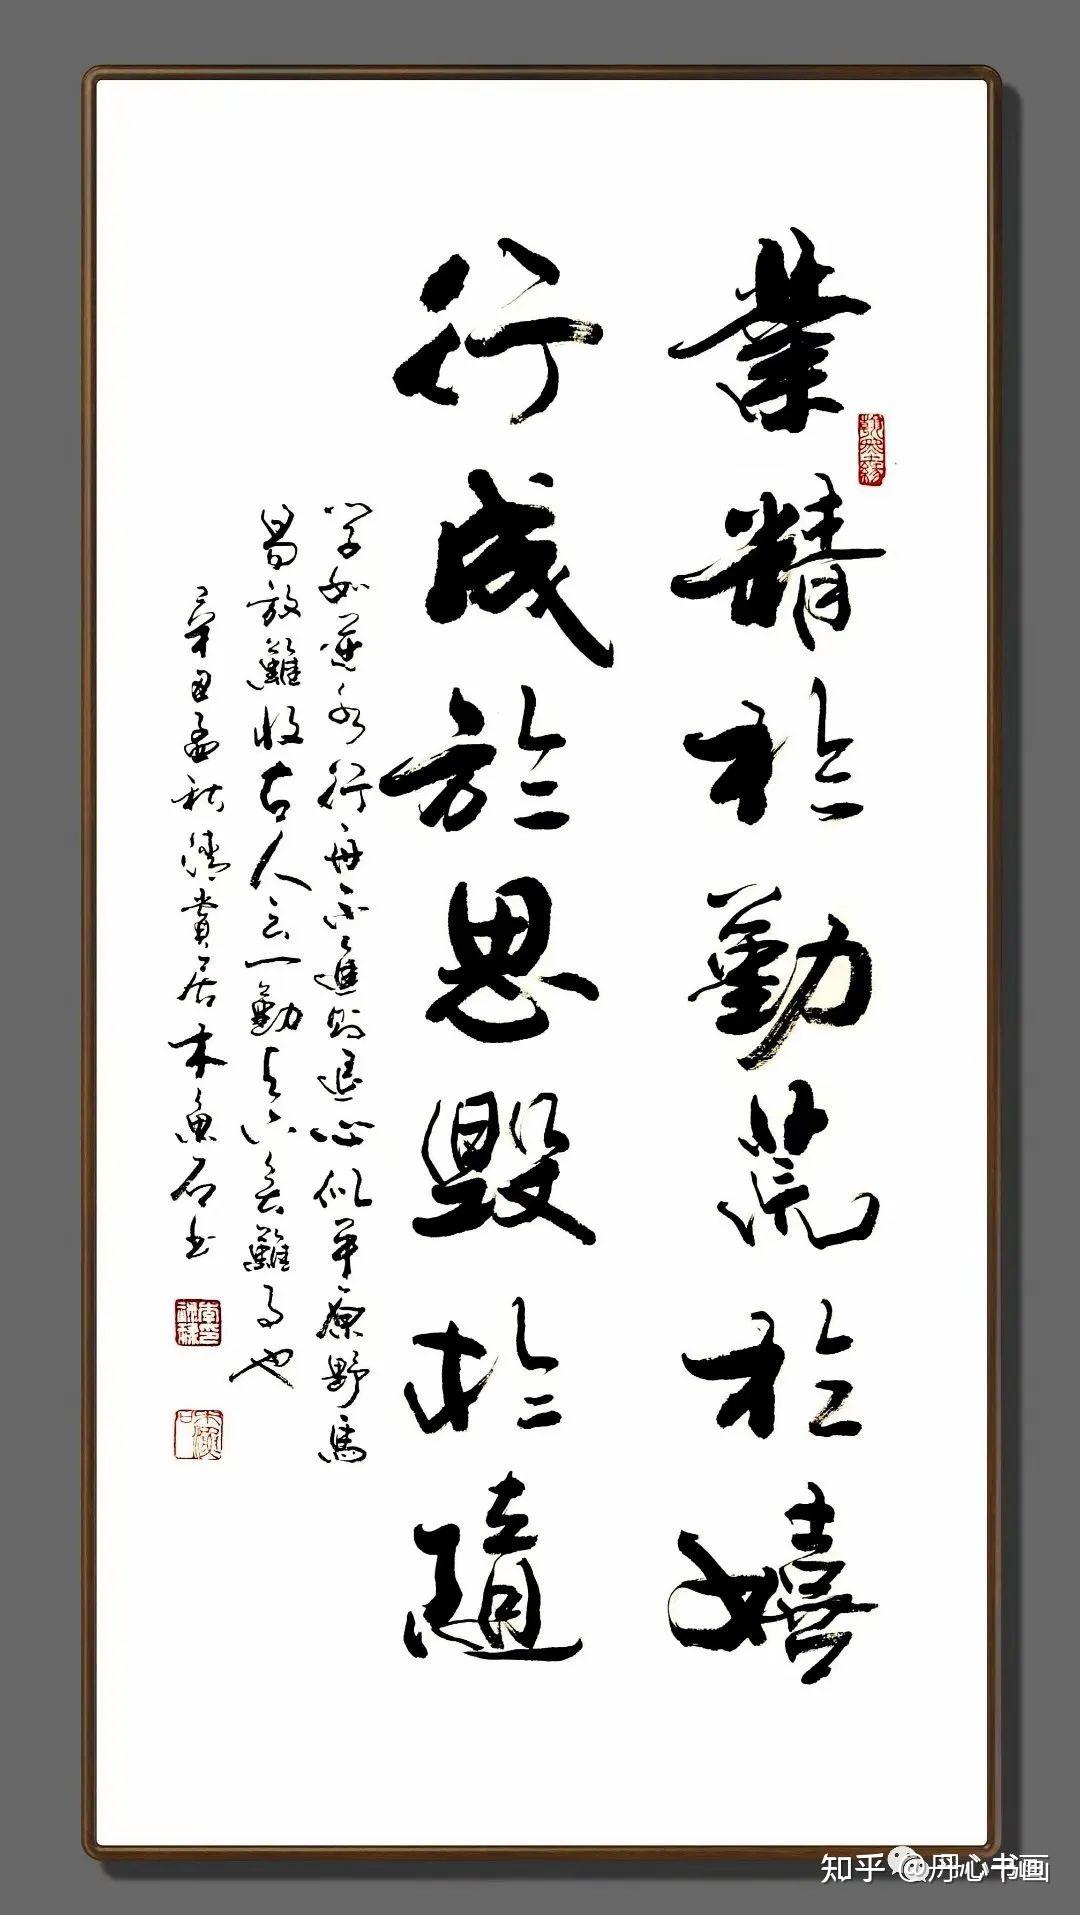 業精於勤荒於嬉
行成於思毀於隨
學如逆水行舟不進則退心似平原野馬
易放難收古人云一勤天下無難事也
辛丑孟秋清賞居木魚石书
知乎 @丹心书画